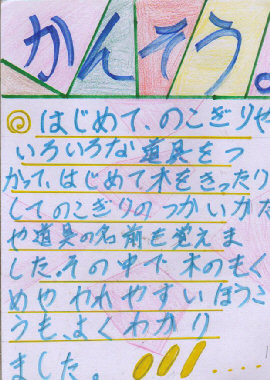 かんそう。
はじめて、のこぎりや
いろいろな道具をつ
かて、はじめて木をきったり
してのこぎりのつかいかた
や道具の名前を覚えま
した。その中で木のもく
めやわれやすいほうこ
うも、よくわかり
ました。